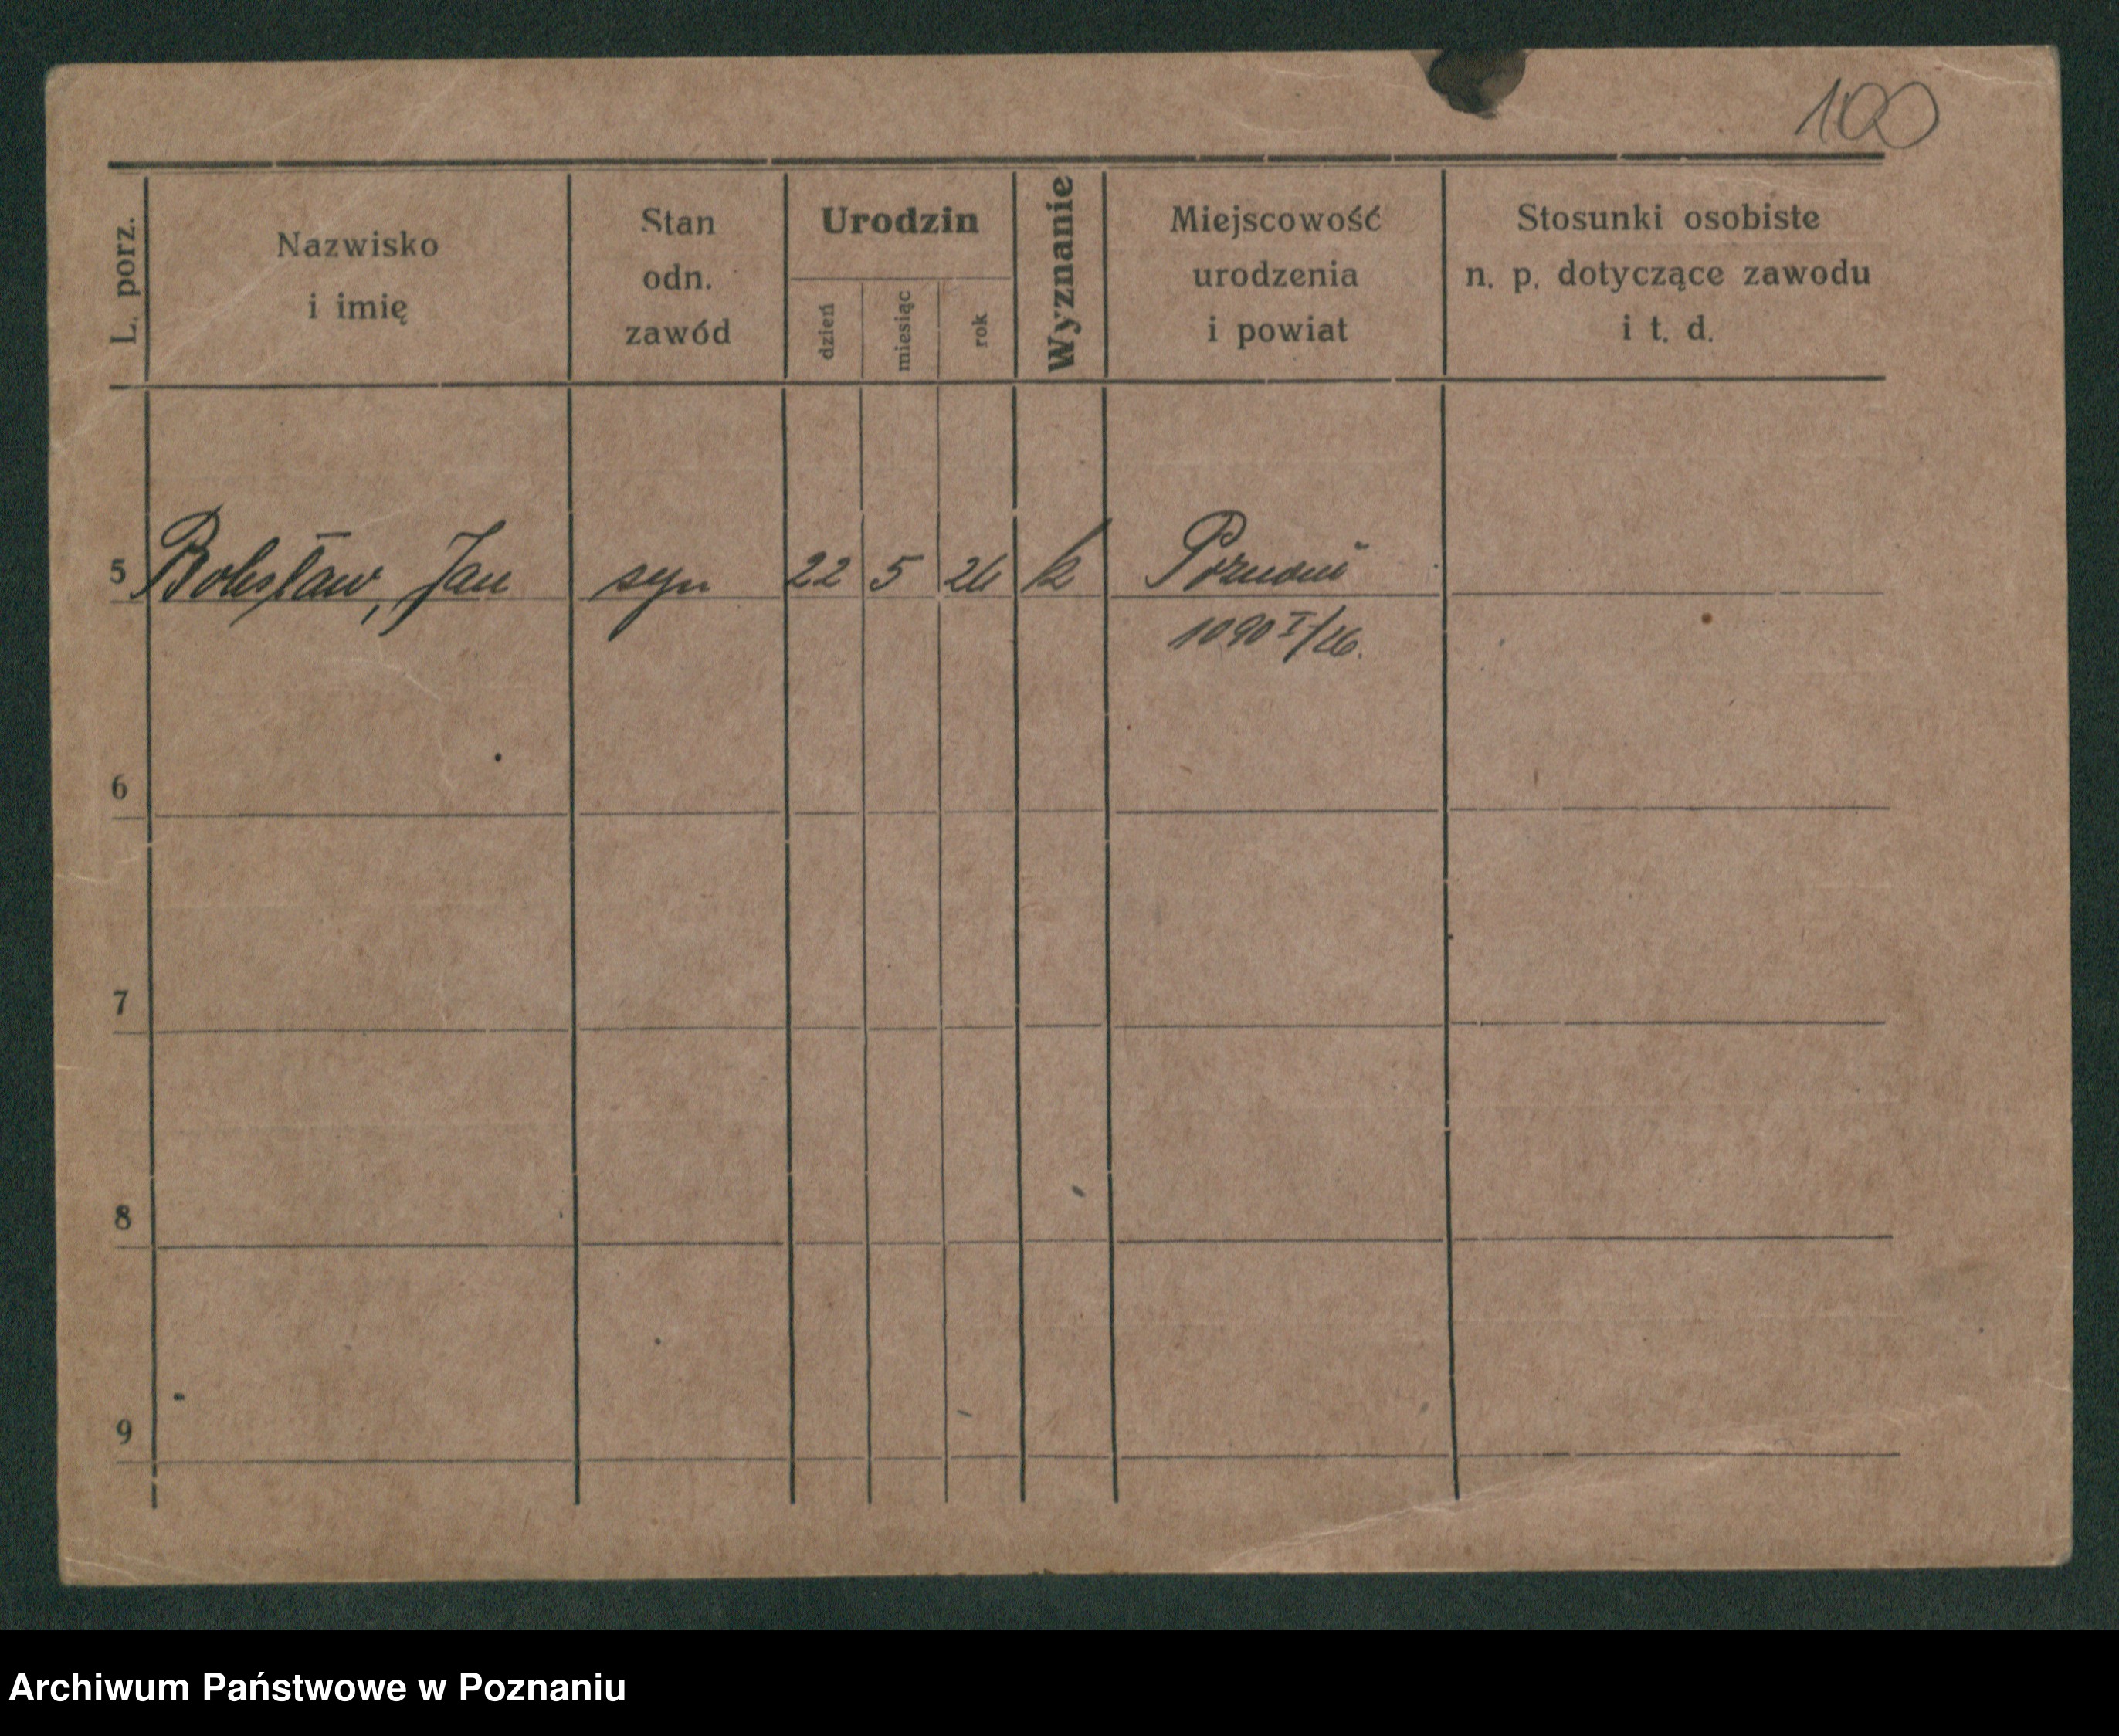 100
L. porz.
Nazwisko
i imię
Stan
odn.
zawód
Urodzin
dzień
miesiąc
rok
Wyznanie
Miejscowość
urodzenia
i powiat
Stosunki osobiste
n. p. dotyczące zawodu
i t. d.
5 Bolesław, Jan syn 22 5 26 k Poznań
1090 I/26.
6
7
8
9
Archiwum Państwowe w Poznaniu